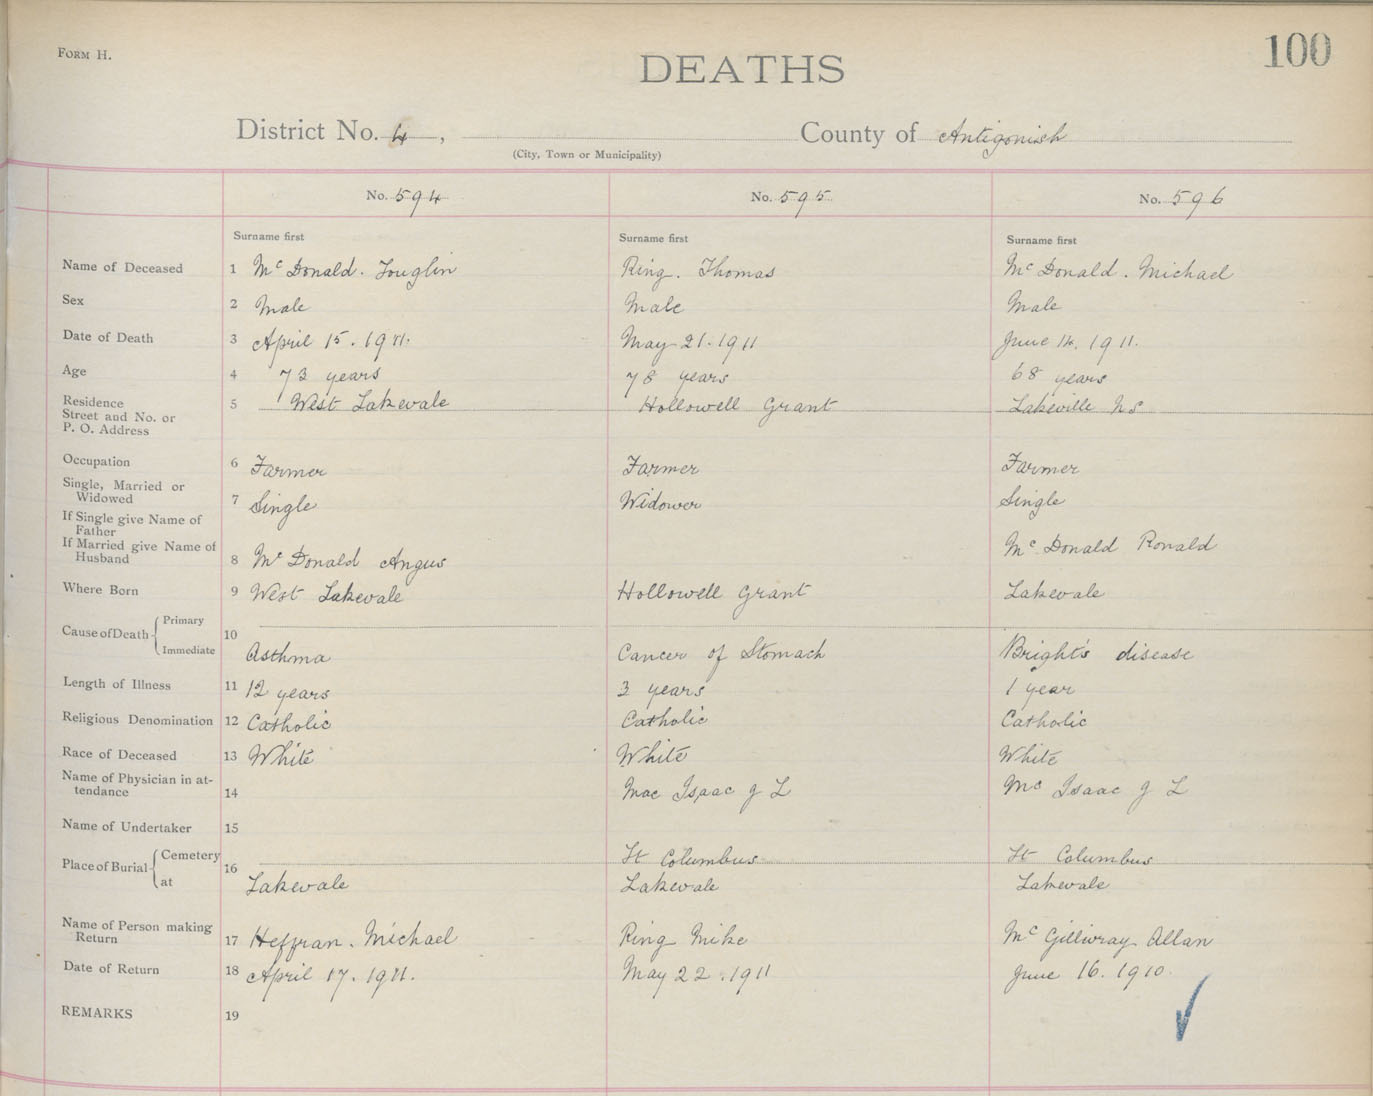 FORM H.
100
DEATHS
District No. 4,
County of Antigonish
(City, Town or Municipality)
No. 594 No. 595 No. 596
Surname first Surname first Surname first
Name of Deceased 1 Mc Donald. Louglin Ring. Thomas Mc Donald. Michael
Sex 2 Male Male Male
Date of Death 3 April 15. 1911. May 21. 1911 June 14. 1911.
Age 4 73 years 78 years 68 years
Residence 5 West Lakevale Hollowell Grant Lakeville NS
Street and No. or
P. O. Address
Occupation 6 Farmer Farmer Farmer
Single, Married or
Widowed 7 Single Widower Single
If Single give Name of
Father
If Married give Name of Mc Donald Ronald
Husband 8 Mc Donald Angus
Where Born 9 West Lakevale Hollowell Grant Lakevale
Cause of Death Primary 10
Immediate Asthma Cancer of Stomach Bright's disease
Length of Illness 11 12 years 3 years 1 year
Religious Denomination 12 Catholic Catholic Catholic
Race of Deceased 13 White White White
Name of Physician in at-
tendance 14 Mac Isaac J L Mc Isaac J L
Name of Undertaker 15
Place of Burial Cemetery 16 St Columbus St Columbus
at Lakevale Lakevale Lakevale
Name of Person making
Return 17 Heffran. Michael Ring Mike Mc Gillivray Allan
Date of Return 18 April 17. 1911. May 22. 1911 June 16. 1910.
REMARKS 19